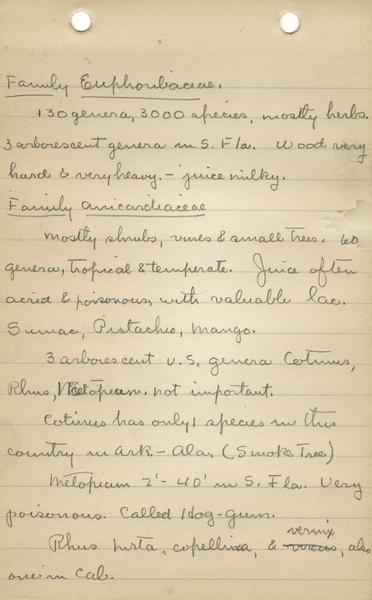 Family Euphorbiaceae.
130 genera, 3000 species, mostly herbs.
3 arborescent genera in S. Fla. Wood very
hard & very heavy. - juice milky.
Family Anicardiaceae
Mostly shrubs, vines & small trees. 60
genera, tropical & temperate. Juice often
acrid & poisonous, with valuable lac.
Sumac, Pistachio, Mango.
3 arborescent U.S. genera Cotinus,
Rhus, Metopium. not important.
Cotinus has only 1 species in this
country in Ark - Ala. (Smoke Tree)
Metopium 2' - 40' in S. Fla. Very
poisonous. Called Hog-gum.
vernix
Rhus hirta, copellina, & also
one in Cal.